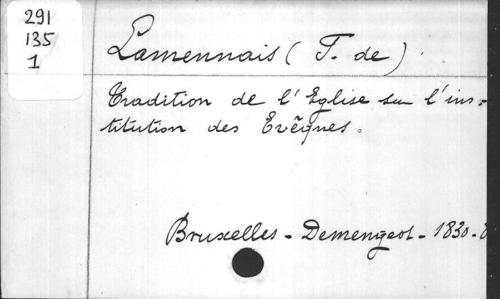 291
135
1
Lamennais (F. de)
Tradition de l'Eglise sur l'ins-
titution des Evêques.
Bruxelles - Demengeot - 1830-8